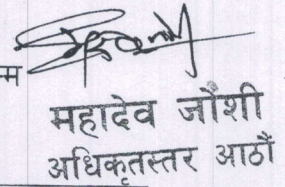 म
महादेव जोशी
अधिकृतस्तर आठौं